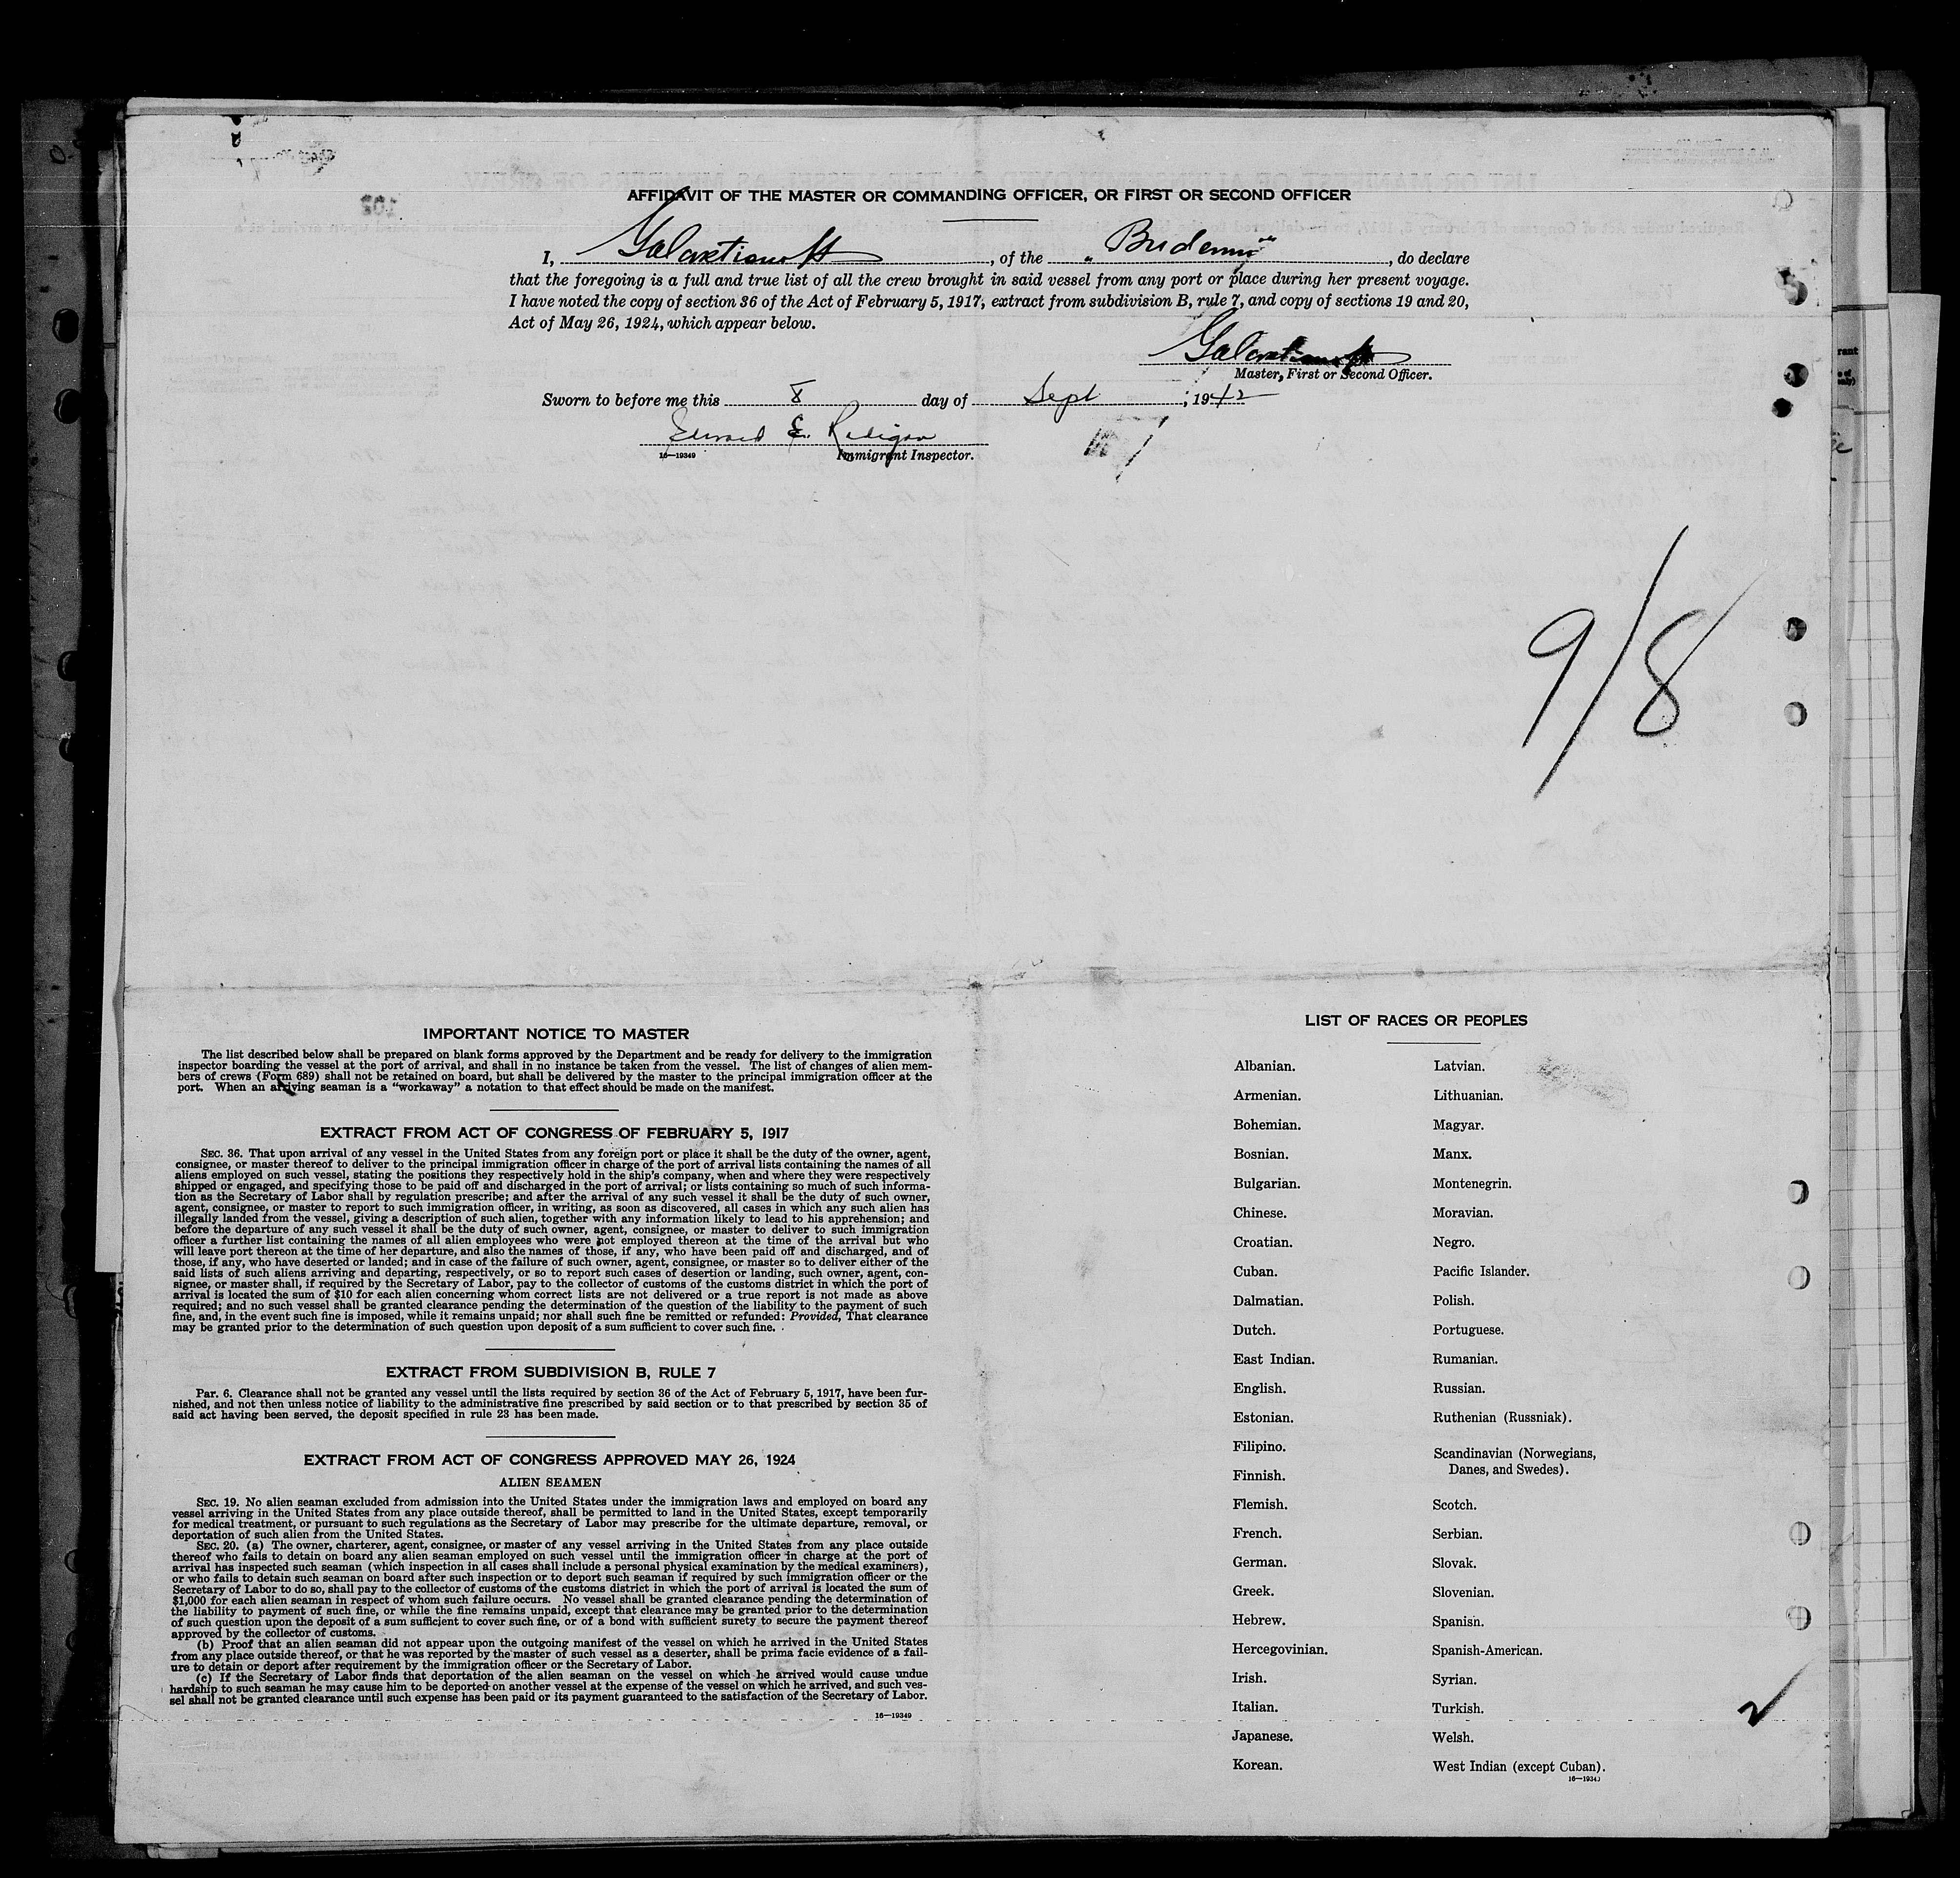 AFFIDAVIT OF THE MASTER OR COMMANDING OFFICER, OR FIRST OR SECOND OFFICER
I, Galaktionoff, of the "Budenny", do declare
that the foregoing is a full and true list of all the crew brought in said vessel from any port or place during her present voyage.
I have noted the copy of section 36 of the Act of February 5, 1917, extract from subdivision B, rule 7, and copy of sections 19 and 20,
Act of May 26, 1924, which appear below.
Galaktionoff
Master, First or Second Officer.
Sworn to before me this 8 day of Sept, 1942
Edward E. Radigan
16—19349 Immigrant Inspector.
9/8
IMPORTANT NOTICE TO MASTER
The list described below shall be prepared on blank forms approved by the Department and be ready for delivery to the immigration
inspector boarding the vessel at the port of arrival, and shall in no instance be taken from the vessel. The list of changes of alien mem-
bers of crews (Form 689) shall not be retained on board, but shall be delivered by the master to the principal immigration officer at the
port. When an arriving seaman is a "workaway" a notation to that effect should be made on the manifest.
EXTRACT FROM ACT OF CONGRESS OF FEBRUARY 5, 1917
SEC. 36. That upon arrival of any vessel in the United States from any foreign port or place it shall be the duty of the owner, agent,
consignee, or master thereof to deliver to the principal immigration officer in charge of the port of arrival lists containing the names of all
aliens employed on such vessel, stating the positions they respectively hold in the ship's company, when and where they were respectively
shipped or engaged, and specifying those to be paid off and discharged in the port of arrival; or lists containing so much of such informa-
tion as the Secretary of Labor shall by regulation prescribe; and after the arrival of any such vessel it shall be the duty of such owner,
agent, consignee, or master to report to such immigration officer, in writing, as soon as discovered, all cases in which any such alien has
illegally landed from the vessel, giving a description of such alien, together with any information likely to lead to his apprehension; and
before the departure of any such vessel it shall be the duty of such owner, agent, consignee, or master to deliver to such immigration
officer a further list containing the names of all alien employees who were not employed thereon at the time of the arrival but who
will leave port thereon at the time of her departure, and also the names of those, if any, who have been paid off and discharged, and of
those, if any, who have deserted or landed; and in case of the failure of such owner, agent, consignee, or master so to deliver either of the
said lists of such aliens arriving and departing, respectively, or so to report such cases of desertion or landing, such owner, agent, con-
signee, or master shall, if required by the Secretary of Labor, pay to the collector of customs of the customs district in which the port of
arrival is located the sum of $10 for each alien concerning whom correct lists are not delivered or a true report is not made as above
required; and no such vessel shall be granted clearance pending the determination of the question of the liability to the payment of such
fine, and, in the event such fine is imposed, while it remains unpaid; nor shall such fine be remitted or refunded: Provided, That clearance
may be granted prior to the determination of such question upon deposit of a sum sufficient to cover such fine.
EXTRACT FROM SUBDIVISION B, RULE 7
Par. 6. Clearance shall not be granted any vessel until the lists required by section 36 of the Act of February 5, 1917, have been fur-
nished, and not then unless notice of liability to the administrative fine prescribed by said section or to that prescribed by section 35 of
said act having been served, the deposit specified in rule 23 has been made.
EXTRACT FROM ACT OF CONGRESS APPROVED MAY 26, 1924
ALIEN SEAMEN
SEC. 19. No alien seaman excluded from admission into the United States under the immigration laws and employed on board any
vessel arriving in the United States from any place outside thereof, shall be permitted to land in the United States, except temporarily
for medical treatment, or pursuant to such regulations as the Secretary of Labor may prescribe for the ultimate departure, removal, or
deportation of such alien from the United States.
SEC. 20. (a) The owner, charterer, agent, consignee, or master of any vessel arriving in the United States from any place outside
thereof who fails to detain on board any alien seaman employed on such vessel until the immigration officer in charge at the port of
arrival has inspected such seaman (which inspection in all cases shall include a personal physical examination by the medical examiners),
or who fails to detain such seaman on board after such inspection or to deport such seaman if required by such immigration officer or the
Secretary of Labor to do so, shall pay to the collector of customs of the customs district in which the port of arrival is located the sum of
$1,000 for each alien seaman in respect of whom such failure occurs. No vessel shall be granted clearance pending the determination of
the liability to payment of such fine, or while the fine remains unpaid, except that clearance may be granted prior to the determination
of such question upon the deposit of a sum sufficient to cover such fine, or of a bond with sufficient surety to secure the payment thereof
approved by the collector of customs.
(b) Proof that an alien seaman did not appear upon the outgoing manifest of the vessel on which he arrived in the United States
from any place outside thereof, or that he was reported by the master of such vessel as a deserter, shall be prima facie evidence of a fail-
ure to detain or deport after requirement by the immigration officer or the Secretary of Labor.
(c) If the Secretary of Labor finds that deportation of the alien seaman on the vessel on which he arrived would cause undue
hardship to such seaman he may cause him to be deported on another vessel at the expense of the vessel on which he arrived, and such ves-
sel shall not be granted clearance until such expense has been paid or its payment guaranteed to the satisfaction of the Secretary of Labor.
16—19349
LIST OF RACES OR PEOPLES
Albanian.
Armenian.
Bohemian.
Bosnian.
Bulgarian.
Chinese.
Croatian.
Cuban.
Dalmatian.
Dutch.
East Indian.
English.
Estonian.
Filipino.
Finnish.
Flemish.
French.
German.
Greek.
Hebrew.
Hercegovinian.
Irish.
Italian.
Japanese.
Korean.
Latvian.
Lithuanian.
Magyar.
Manx.
Montenegrin.
Moravian.
Negro.
Pacific Islander.
Polish.
Portuguese.
Rumanian.
Russian.
Ruthenian (Russniak).
Scandinavian (Norwegians,
Danes, and Swedes).
Scotch.
Serbian.
Slovak.
Slovenian.
Spanish.
Spanish-American.
Syrian.
Turkish.
Welsh.
West Indian (except Cuban).
2